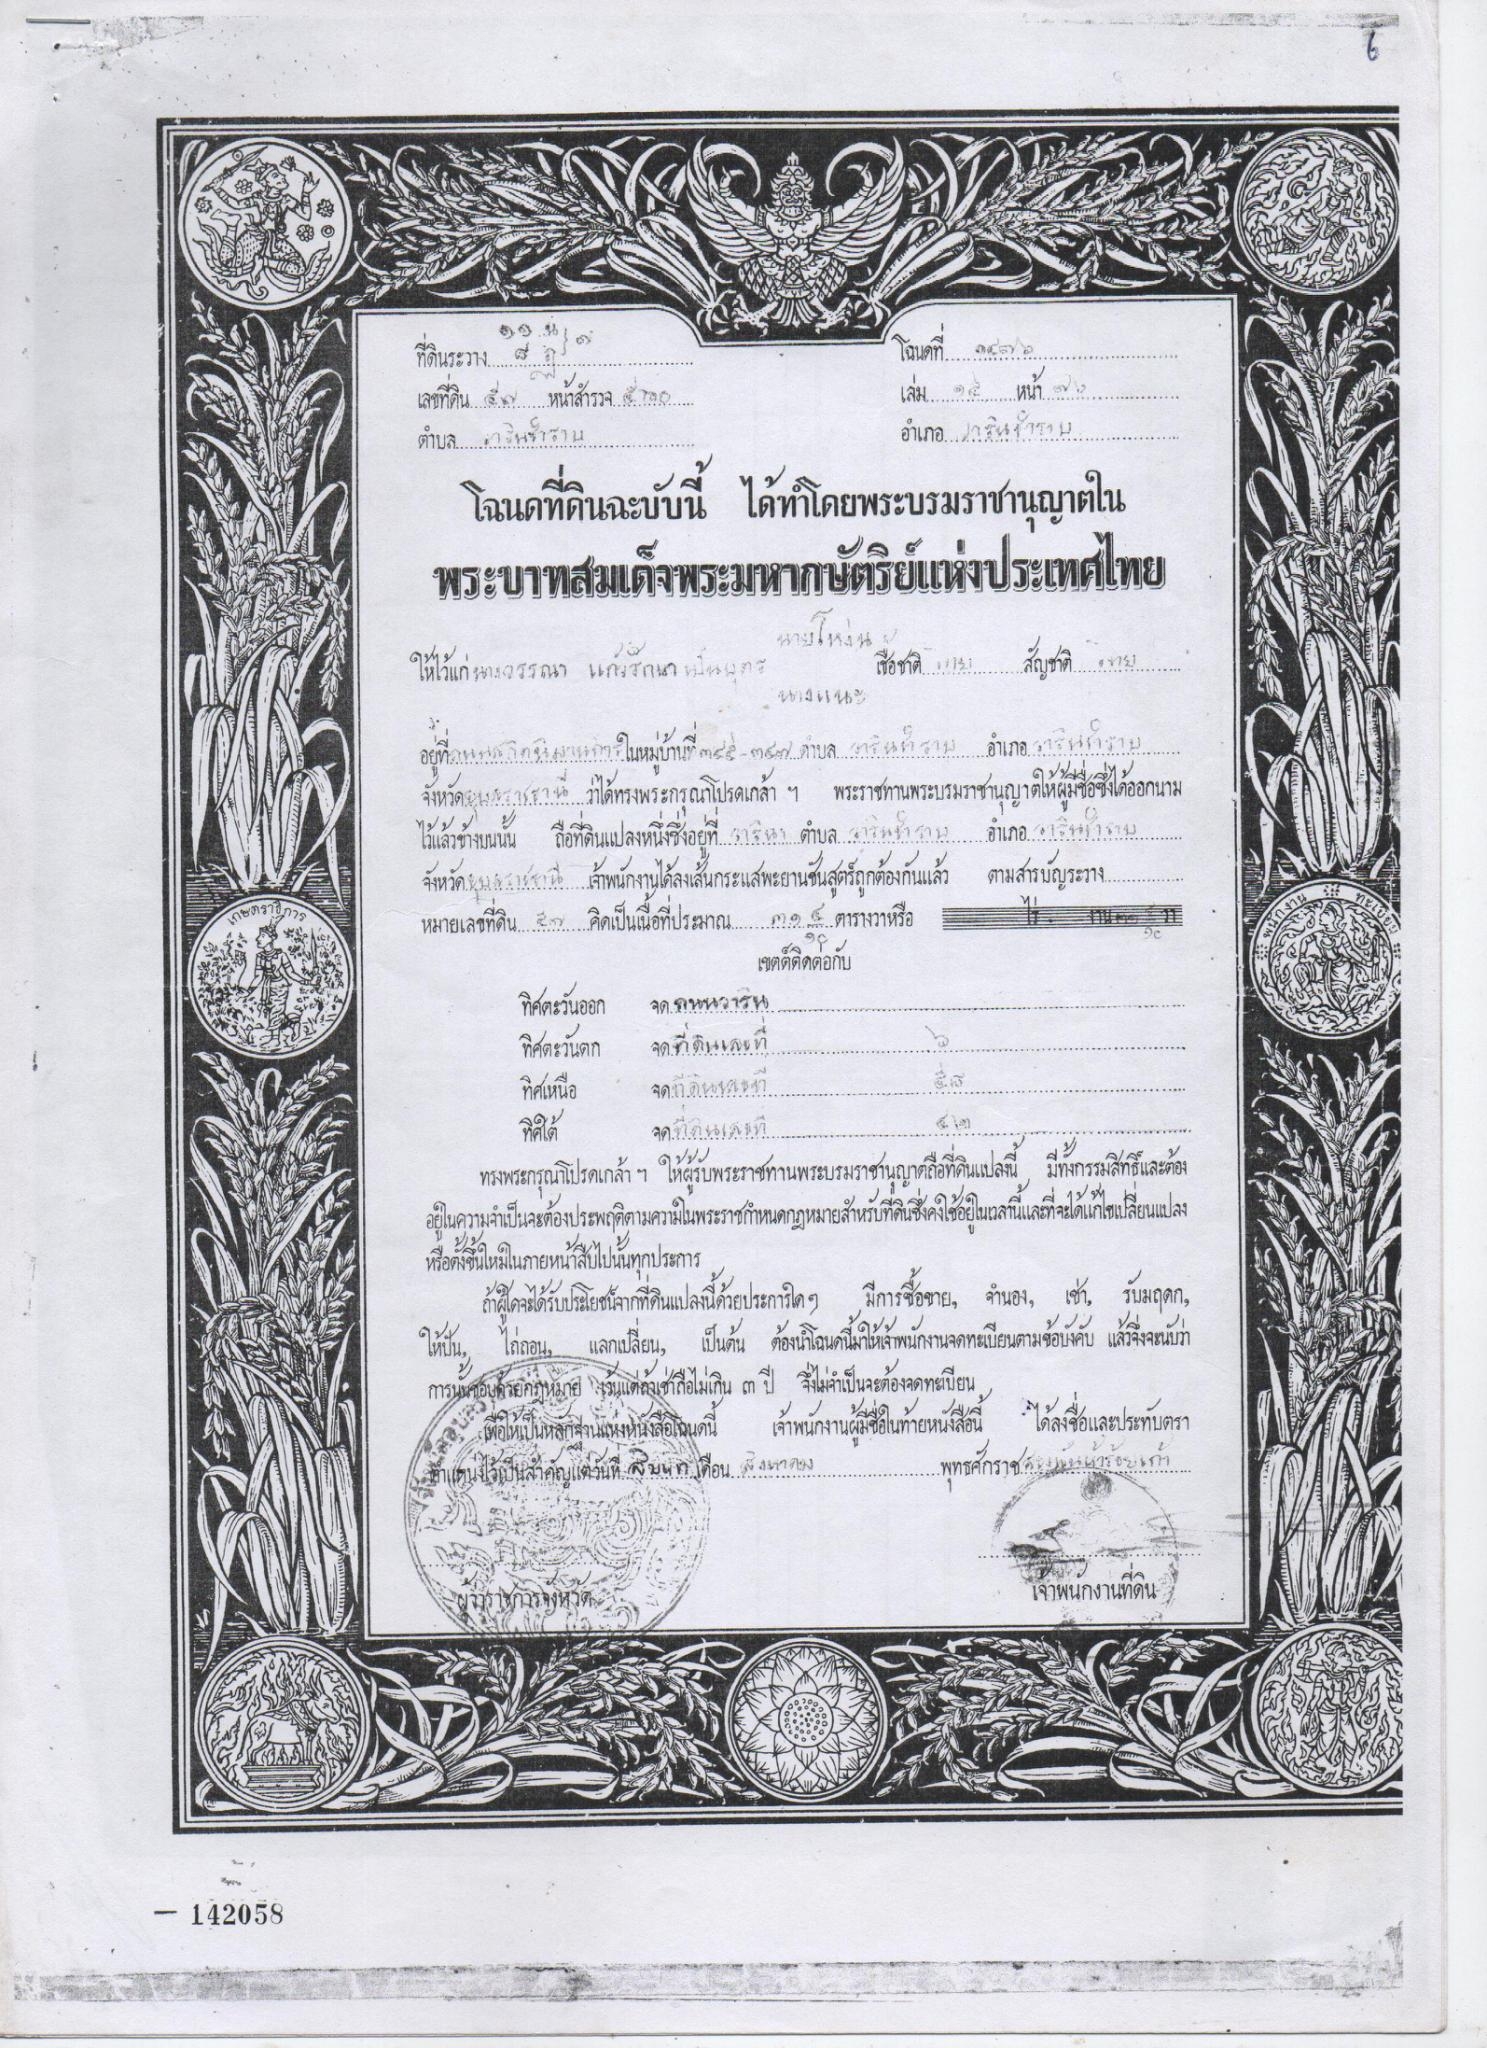 6
ที่ดินระวาง
โฉนดที่ ๑๔๗๖
เลขที่ดิน ๕๗ หน้าสำรวจ
เล่ม ๑๕ หน้า ๗๖
ตำบล วารินชำราบ
อำเภอ วารินชำราบ
โฉนดที่ดินฉะบับนี้ ได้ทำโดยพระบรมราชานุญาตใน
พระบาทสมเด็จพระมหากษัตริย์แห่งประเทศไทย
นายโหง่น
ให้ไว้แก่ นางวรรณา แก้วรักษา เป็นบุตร เชื้อชาติ ไทย สัญชาติ ไทย
นางแนะ
อยู่ที่ ถนนสถิตย์นิมานการ ในหมู่บ้านที่ ๓๔๕-๓๔๗ ตำบล วารินชำราบ อำเภอ วารินชำราบ
จังหวัด อุบลราชธานี ว่าได้ทรงพระกรุณาโปรดเกล้า ฯ พระราชทานพระบรมราชานุญาตให้ผู้มีชื่อซึ่งได้ออกนาม
ไว้แล้วข้างบนนั้น ถือที่ดินแปลงหนึ่งซึ่งอยู่ที่ วาริน ตำบล วารินชำราบ อำเภอ วารินชำราบ
จังหวัด อุบลราชธานี เจ้าพนักงานได้ลงเส้นกระแสพะยานชันสูตร์ถูกต้องกันแล้ว ตามสารบัญระวาง
หมายเลขที่ดิน ๕๗ คิดเป็นเนื้อที่ประมาณ ๓๑ ๕/๑๐ ตารางวาหรือ ไร่ งาน วา
เขตต์ติดต่อกับ
ทิศตะวันออก จด ถนนวาริน
ทิศตะวันตก จด ที่ดินเลขที่ ๖
ทิศเหนือ จด ที่ดินเลขที่ ๕๘
ทิศใต้ จด ที่ดินเลขที่
ทรงพระกรุณาโปรดเกล้า ฯ ให้ผู้รับพระราชทานพระบรมราชานุญาตถือที่ดินแปลงนี้ มีทั้งกรรมสิทธิ์และต้อง
อยู่ในความจำเป็นจะต้องประพฤติตามความในพระราชกำหนดกฎหมายสำหรับที่ดินซึ่งคงใช้อยู่ในเวลานี้และที่จะได้แก้ไขเปลี่ยนแปลง
หรือตั้งขึ้นใหม่ในภายหน้าสืบไปนั้นทุกประการ
ถ้าผู้ใดจะได้รับประโยชน์จากที่ดินแปลงนี้ด้วยประการใด ๆ มีการซื้อขาย, จำนอง, เช่า, รับมฤดก,
ให้ปัน, ไถ่ถอน, แลกเปลี่ยน, เป็นต้น ต้องนำโฉนดนี้มาให้เจ้าพนักงานจดทะเบียนตามข้อบังคับ แล้วจึ่งจะนับว่า
การนั้นชอบด้วยกฎหมาย เว้นแต่ถ้าเช่าถือไม่เกิน ๓ ปี จึ่งไม่จำเป็นจะต้องจดทะเบียน
เพื่อให้เป็นหลักฐานแห่งหนังสือโฉนดนี้ เจ้าพนักงานผู้มีชื่อในท้ายหนังสือนี้ ได้ลงชื่อและประทับตรา
ตำแหน่งไว้เป็นสำคัญแต่วันที่ เดือน สิงหาคม พุทธศักราช
ผู้ว่าราชการจังหวัด
เจ้าพนักงานที่ดิน
เกษตราธิการ
พนักงาน ทะเบียน
142058